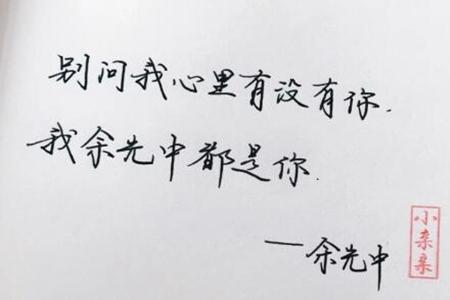 别问我心里有没有你.
我余光中都是你.
——余光中
小亲亲